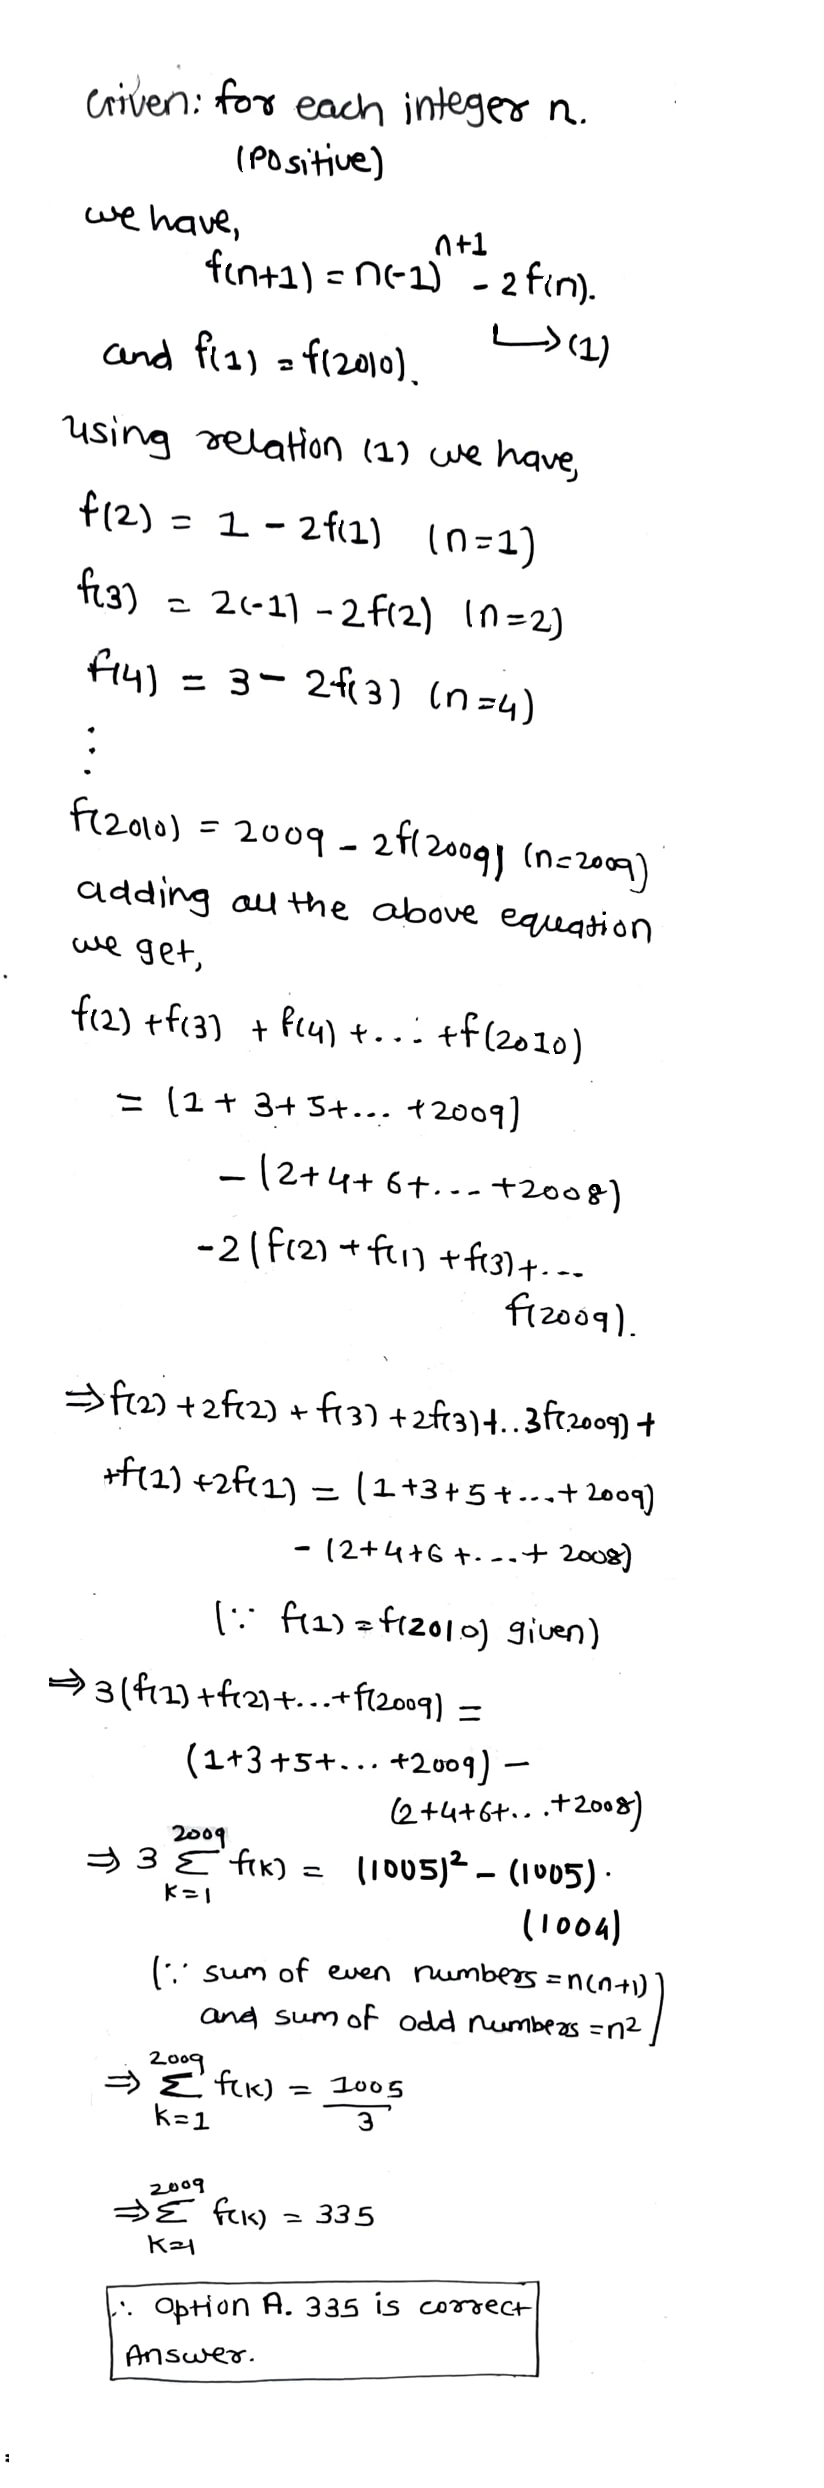 Given: for each integer n.
(Positive)
we have,
f(n+1) = n(-1)^{n+1} - 2f(n).
↳(1)
and f(1) = f(2010).
using relation (1) we have,
f(2) = 1 - 2f(1) (n=1)
f(3) = 2(-1) - 2f(2) (n=2)
f(4) = 3 - 2f(3) (n=4)
⋮
f(2010) = 2009 - 2f(2009) (n=2009)
adding all the above equation
we get,
f(2) + f(3) + f(4) + ... + f(2010)
= (1 + 3 + 5 + ... + 2009)
- (2+4+6+... +2008)
-2(f(2) + f(1) + f(3) + ...
f(2009).
⇒ f(2) + 2f(2) + f(3) + 2f(3) + .. 3f(2009) +
+f(1) + 2f(1) = (1+3+5+...+2009)
- (2+4+6+...+2008)
(∵ f(1) = f(2010) given)
⇒ 3(f(1) + f(2) + ... + f(2009) =
(1+3+5+... +2009) -
(2+4+6+...+2008)
⇒ 3 \sum_{k=1}^{2009} f(k) = (1005)² - (1005).
(1004)
(∵ sum of even numbers = n(n+1)
and sum of odd numbers = n²)
⇒ \sum_{k=1}^{2009} f(k) = \frac{1005}{3}
⇒ \sum_{k=1}^{2009} f(k) = 335
∴ option A. 335 is correct
Answer.